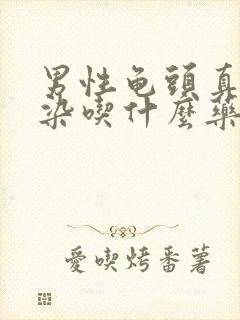 男性龟頭真
染喫什麼藥
愛喫烤番薯